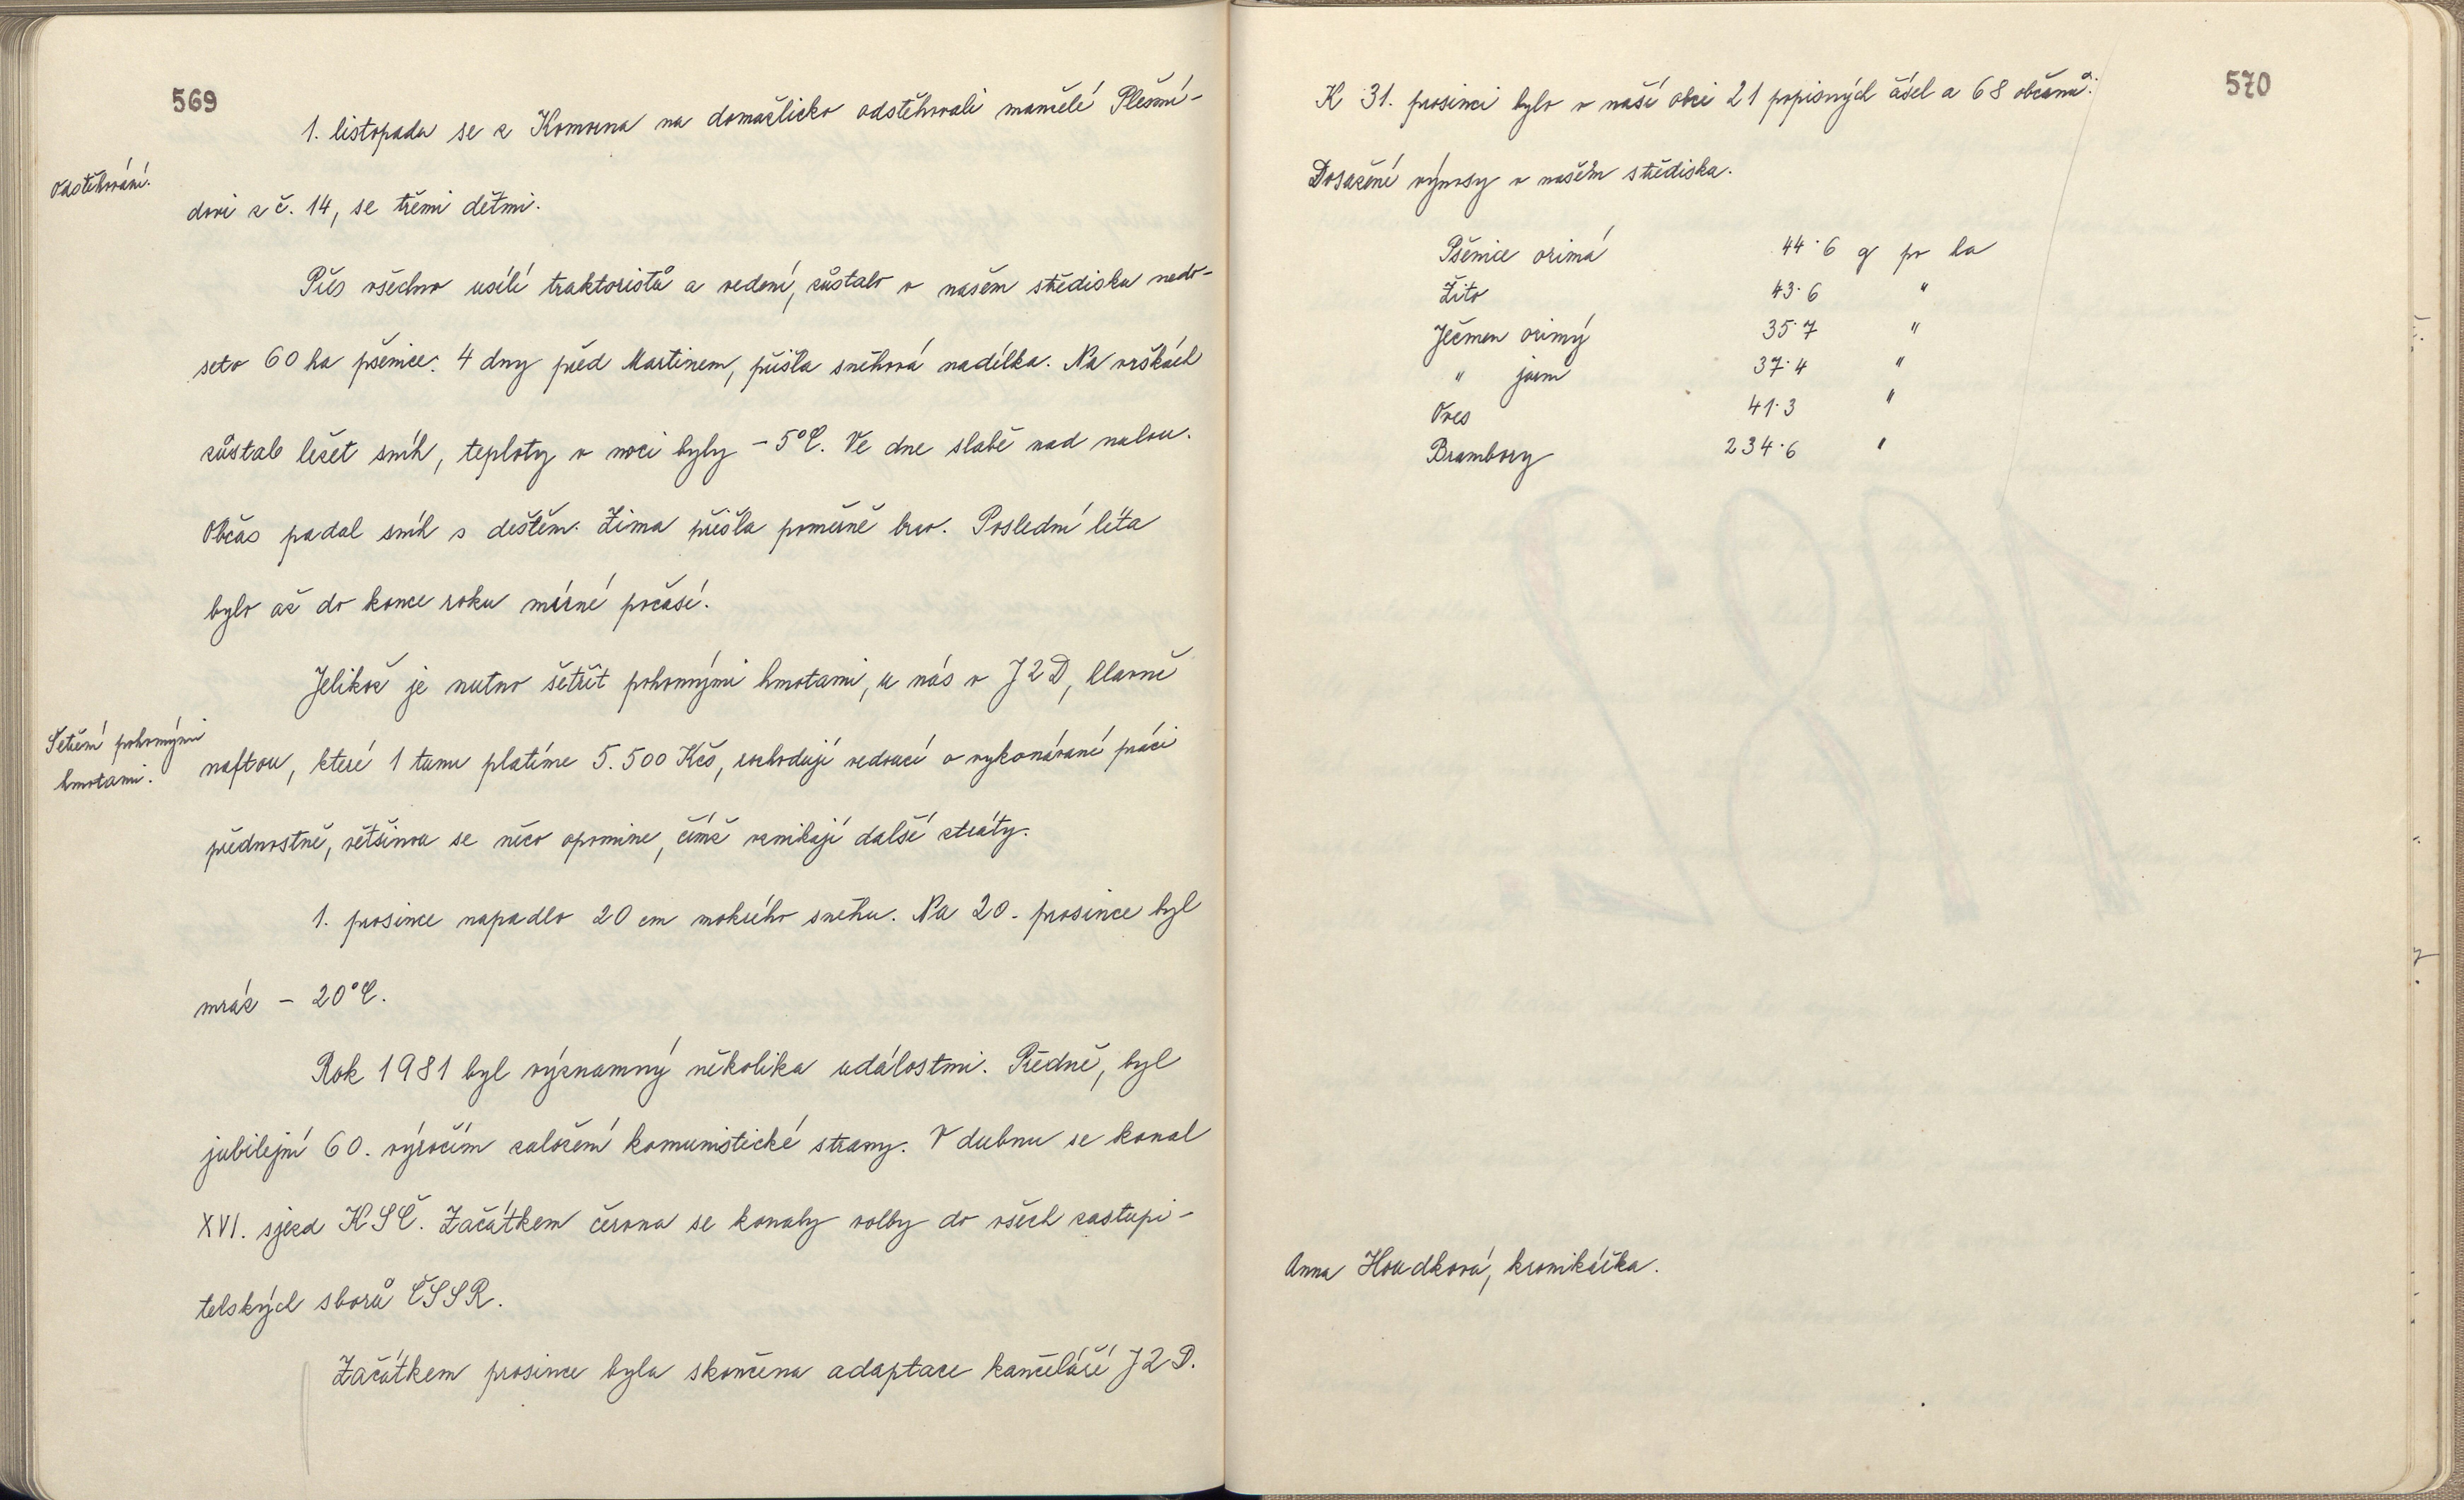 569
1. listopadu se z Komorna na domažlicko odstěhovali manželé Plešmí-
Odstěhování.
dovi z č. 14, se třemi dětmi.
Přes všechno usílí traktoristů a vedení, zůstalo v našem středisku nedo-
seto 60 ha pšenice. 4 dny před Martinem, přišla sněhová nadílka. Na vrškách
zůstalo ležet sníh, teploty v noci byly - 5°C. Ve dne slabě nad nulou.
Občas padal sníh s deštěm. Zima přišla poměrně brzo. Poslední léta
bylo až do konce roku mírné počasí.
Jelikož je nutno šetřit pohonnými hmotami, u nás v JZD, hlavně
Šetření pohonnými
hmotami.
naftou, které 1 tunu platíme 5.500 Kčs, rozhodují vedoucí o vykonávané práci
přednostně, většinou se něco opomine, čímž vznikají další ztráty.
1. prosince napadlo 20 cm mokrého sněhu. Na 20. prosince byl
mráz - 20°C.
Rok 1981 byl významný několika událostmi. Předně, byl
jubilejní 60. výročím založení komunistické strany. V dubnu se konal
XVI. sjezd KSČ. Začátkem června se konaly volby do všech zastupi-
telských sborů ČSSR.
Začátkem prosince byla skončena adaptace kanceláří JZD.
570
K 31. prosinci bylo v naší obci 21 popisných čísel a 68 občanů.
Dosažené výnosy v našem střediska.
Pšenice ozimá 44·6 q po ha
Žito 43·6 "
Ječmen ozimý 35·7 "
" jarní 37·4 "
Oves 41·3 "
Brambory 234·6 "
Anna Houdková, kronikářka.